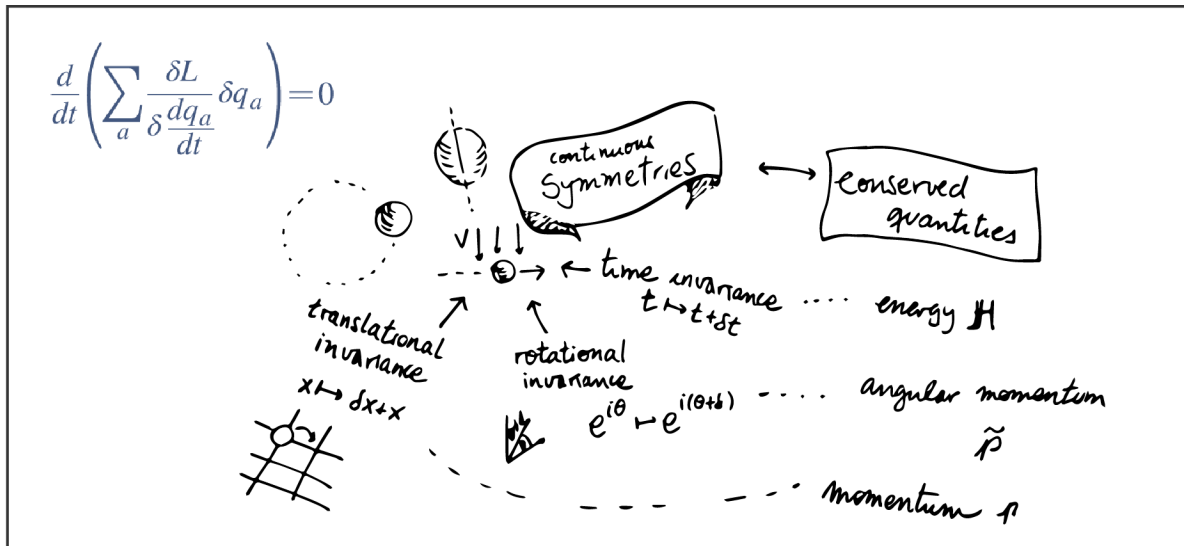 d/dt ( ∑_a δL / δ dq_a/dt δq_a ) = 0
continuous
symmetries
conserved
quantities
V
time invariance
t ↦ t+δt
energy H
translational
invariance
x ↦ δx+x
rotational
invariance
e^{iθ} ↦ e^{i(θ+δ)}
angular momentum
p̃
momentum p